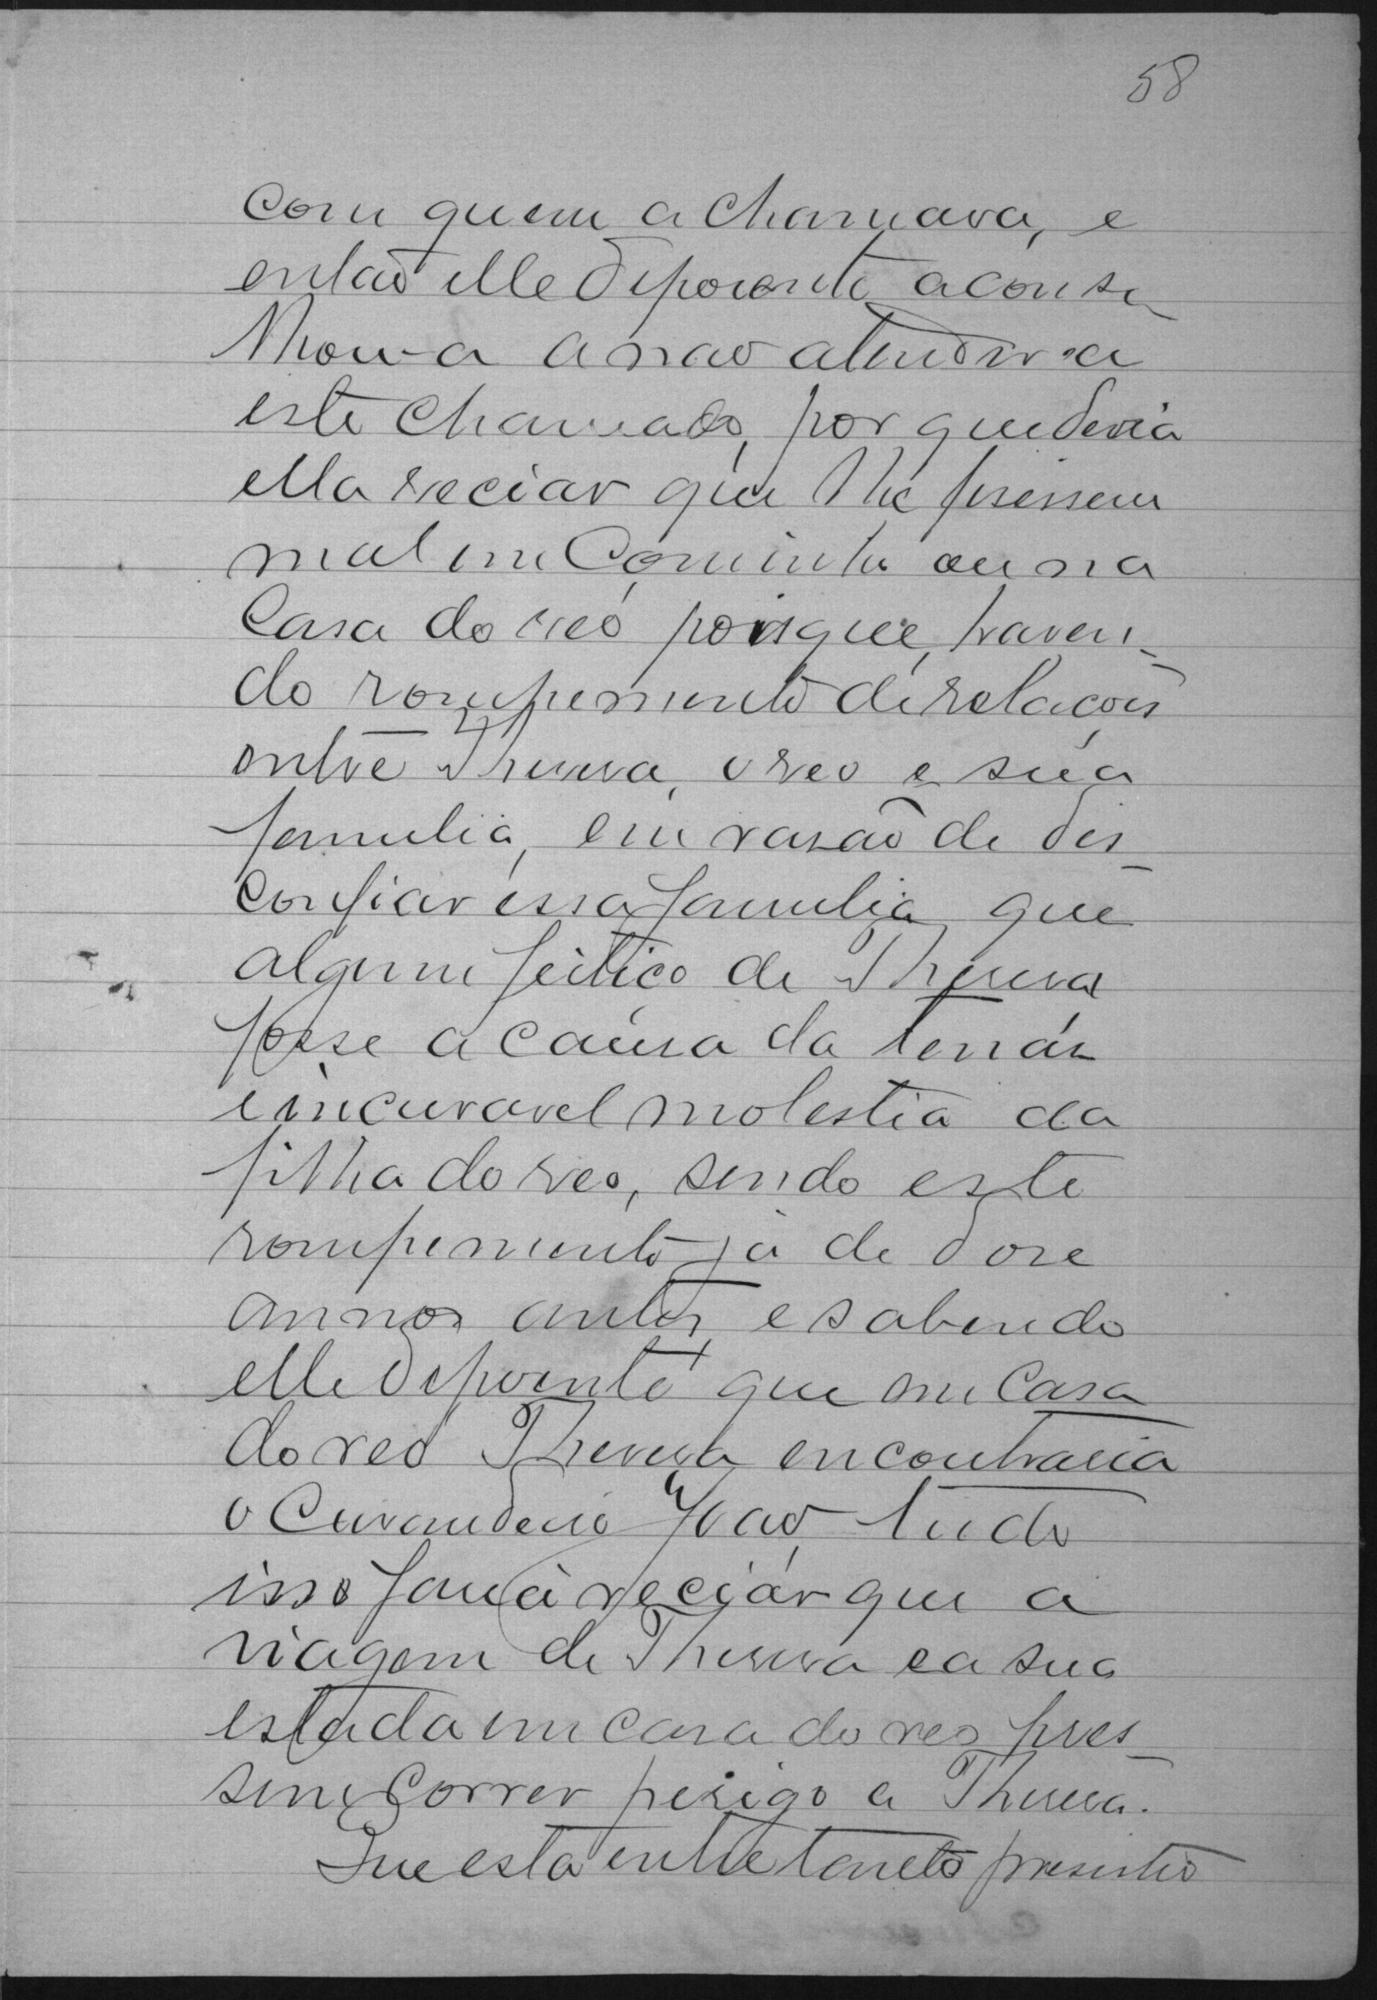 58
com quem a chamava, e
então elle depoente aconse
lhou-a a não attender a
este chamado, por que devia
ella reciar que lhe fisessem
mal em caminho ou na
casa do reo porisque, haven-
do rompemento de relações
entre Theresa, o reo e sua
familia, em rasão de des-
confiar essa familia que
algum feitiço de Theresa
fosse a causa da tenás
e incuravel molestia da
filha do reo, sendo este
rompemento já de dose
annos antes, e sabendo
elle depoente que em casa
do reo Theresa encontraria
o Curandeiro João, tudo
isso fasia reciár que a
viagem de Theresa e a sua
estada em casa do reo fises-
sem correr perigo a Theresa.
Que esta entretanto presistio